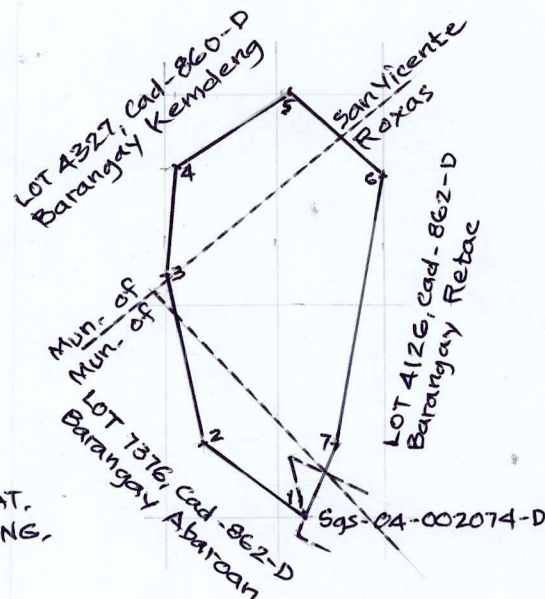 LOT 4327, Cad-860-D
Barangay Kemdeng
San Vicente
Roxas
5
4
6
3
Mun. of
Mun. of
LOT 4126, Cad-862-D
Barangay Retac
LOT 7376, Cad-862-D
Barangay Abaroan
2
7
1
Sgs-04-002074-D
AT.
NG.